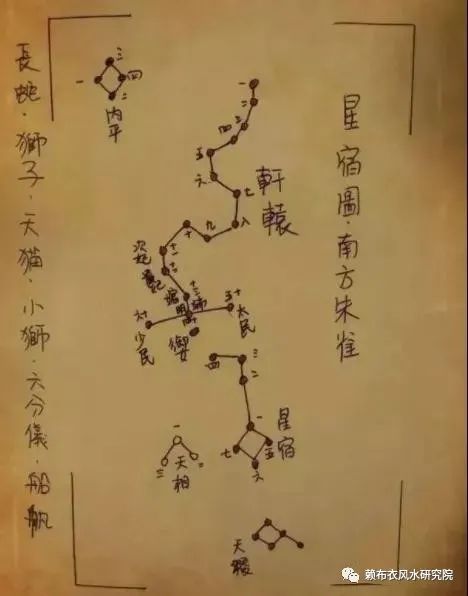 星宿圖·南方朱雀
軒轅
一
二
三
四
五
六
七
八
九
十
十一
十二
次妃
十三
明
十四
御女
十五
太民
十六
少民
三
四
一
二
內平
四
三
二
一
星宿
七
五
六
天相
三
二
天稷
長蛇·獅子·天猫·小獅·六分儀·船帆
赖布衣风水研究院